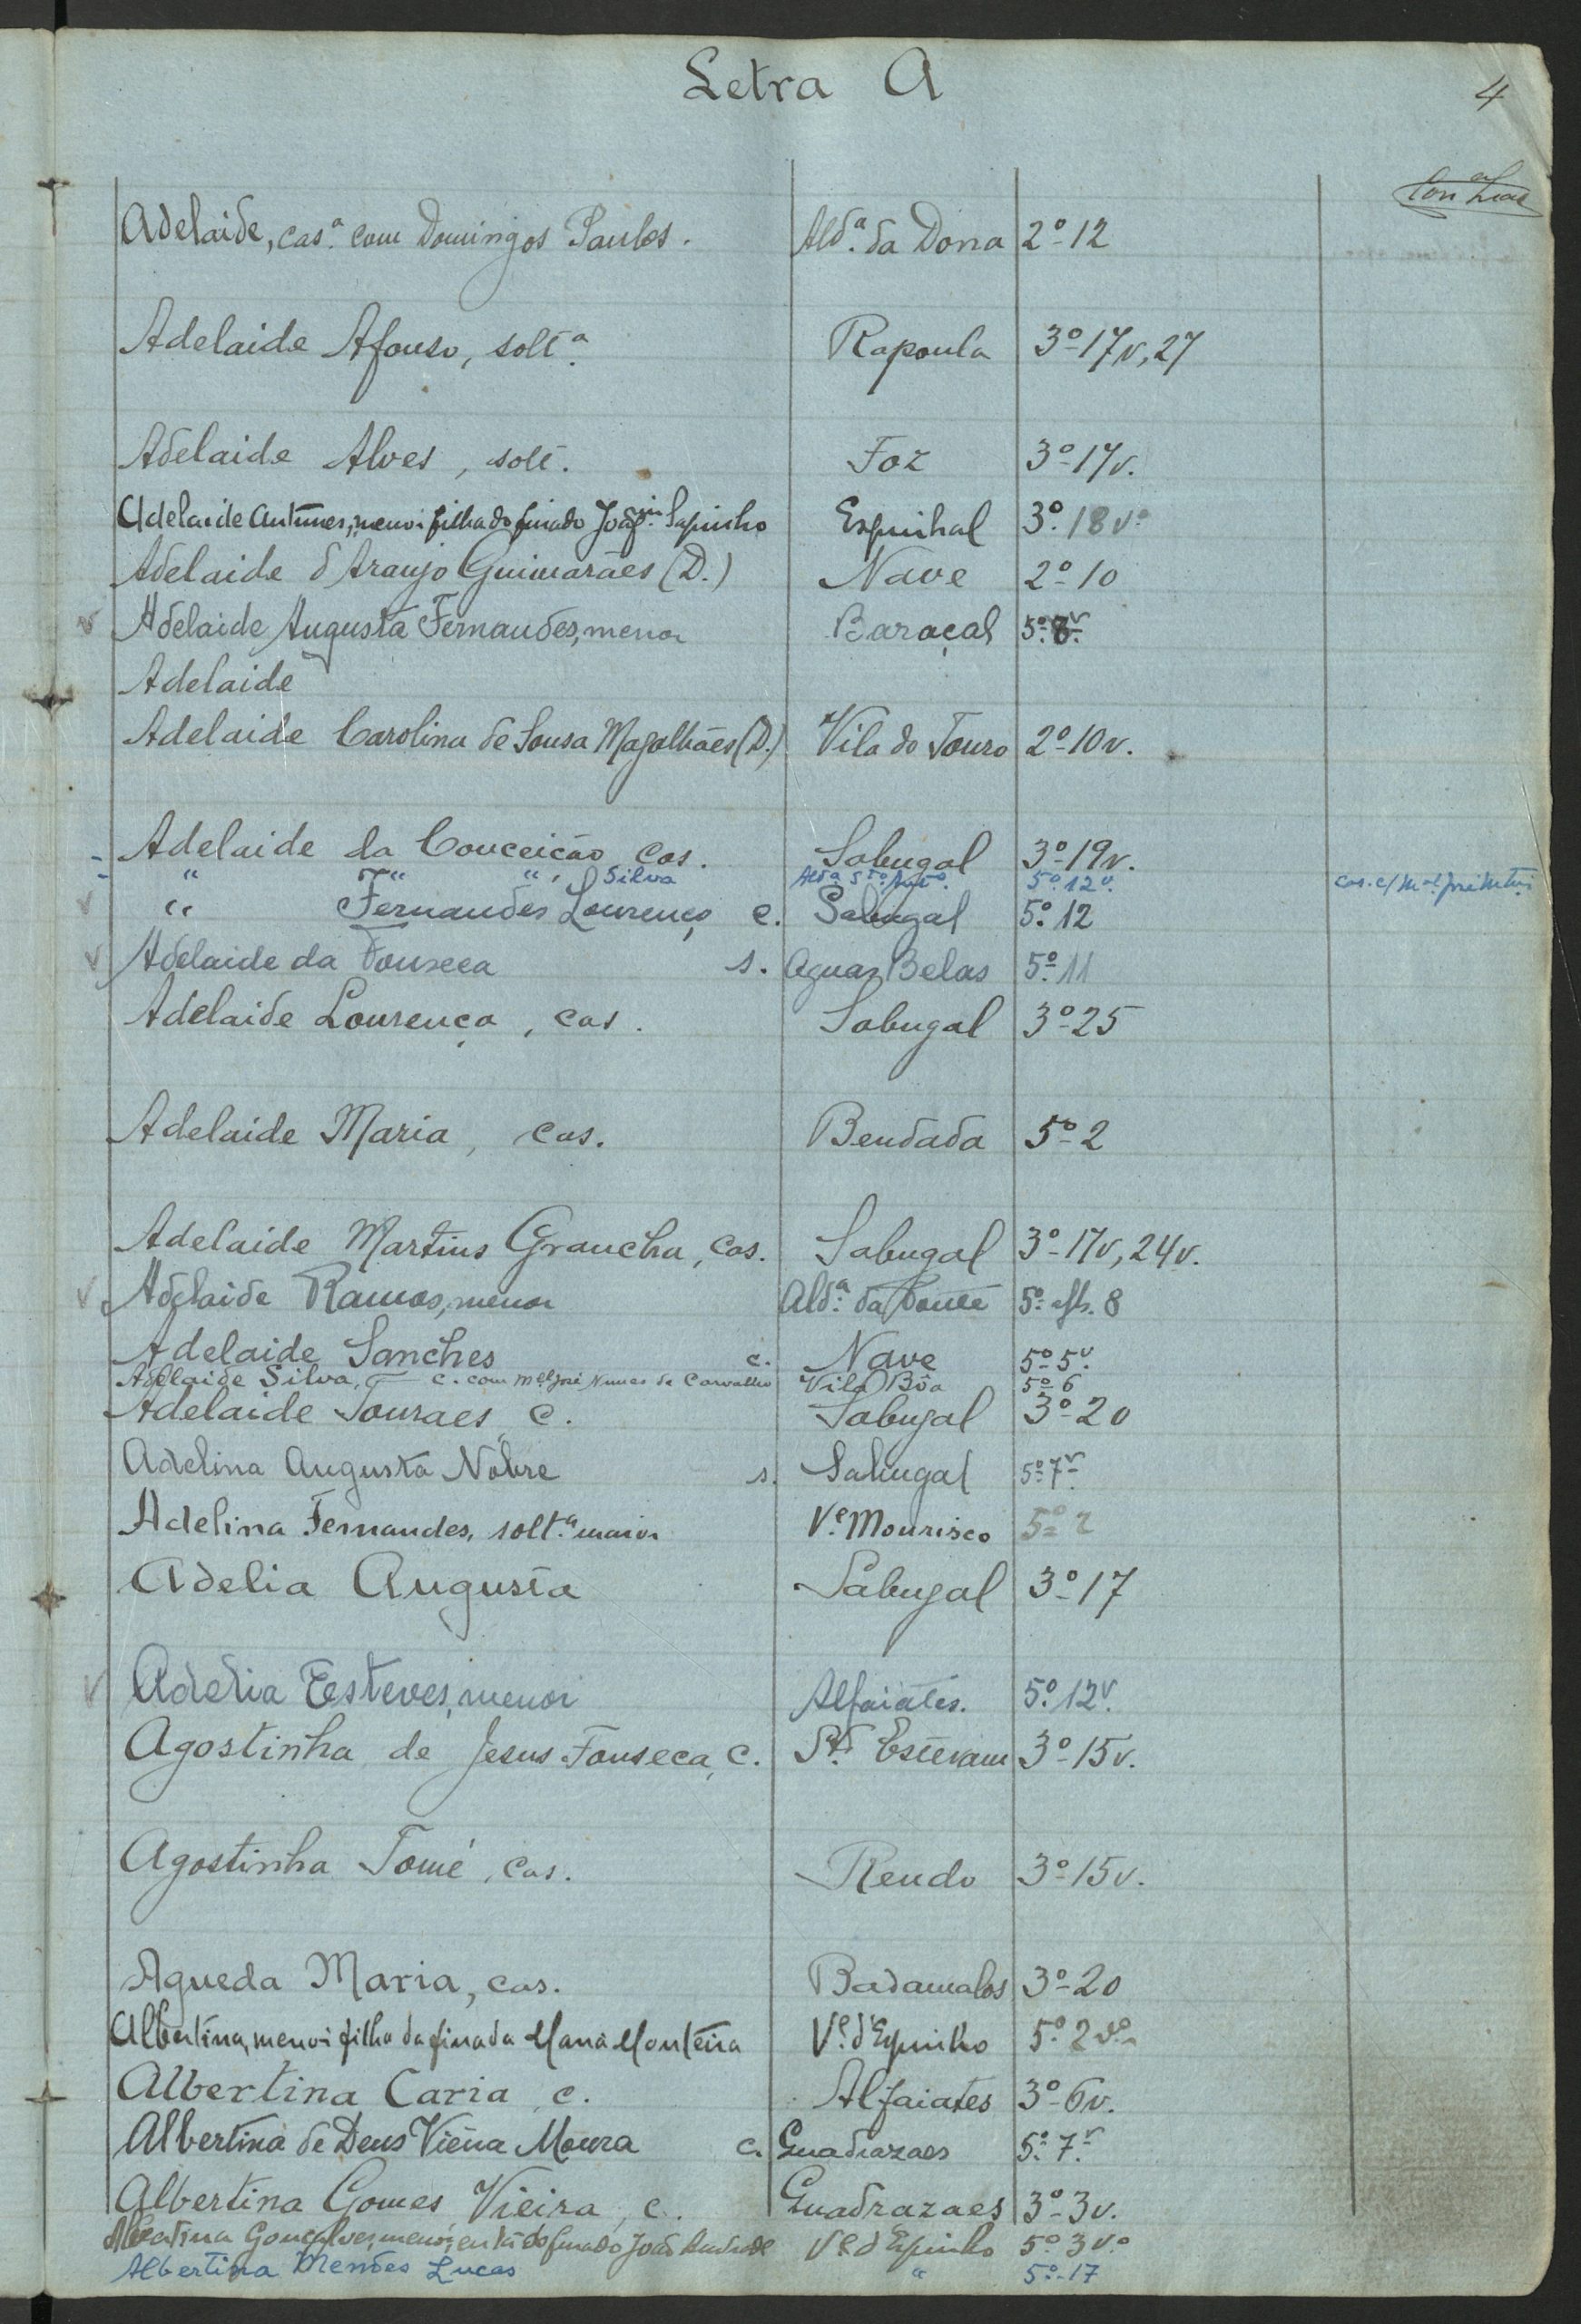 Letra A
4
Adelaide, cas.ª com Domingos Paulos. Ald.ª da Dona 2º-12
Adelaide Afonso, solt.ª Rapoula 3º-17v, 27
Adelaide Alves, solt. Foz 3º-17v.
Adelaide Antunes, menor filha do finado Joaq.im Sapinho Espinhal 3º.18vº
Adelaide d'Araujo Guimarães (D.) Nave 2º-10
v Adelaide Augusta Fernandes, menor Baraçal 5º.8v.
Adelaide
Adelaide Carolina de Sousa Magalhães (D.) Vila do Touro 2º-10v.
- Adelaide da Conceição, cas. Sabugal 3º-19v.
- " " ", Silva Ald.ª Stº Antº. 5º.12v. cas. c/ M.el José
v " Fernandes Lourenço c. Sabugal 5º.12
v Adelaide da Fonseca s. Aguas Belas 5º.11
Adelaide Lourença, cas. Sabugal 3º-25
Adelaide Maria, cas. Bendada 5º-2
Adelaide Martins Grancha, cas. Sabugal 3º-17v, 24v.
v Adelaide Ramos, menor Ald.ª da Ponte 5º. afls. 8
Adelaide Sanches c. Nave 5º-5v.
Adelaide Silva, c. com M.el José Nunes de Carvalho Vila Bôa 5º-6
Adelaide Touraes c. Sabugal 3º-20
Adelina Augusta Nobre s. Sabugal 5º-7v.
Adelina Fernandes, solt.ª maior V.e Mourisco 5º=2
Adelia Augusta Sabugal 3º-17
v Adelia Esteves, menor Alfaiates. 5º.12v.
Agostinha de Jesus Fonseca, c. Stº Estevam 3º-15v.
Agostinha Tomé, cas. Rendo 3º-15v.
Agueda Maria, cas. Badamalos 3º-20
Albertina, menor filha da finada Maria Monteira V.e d'Espinho 5º.2vº
Albertina Caria c. Alfaiates 3º-6v.
Albertina de Deus Vieira Moura c. Quadrazaes 5º.7v.
Albertina Gomes Vieira, c. Quadrazaes 3º-3v.
Albertina Gonçalves, menor, ent.da do finado João Andrade V.e d'Espinho 5º.3vº
Albertina Mendes Lucas " 5º-17